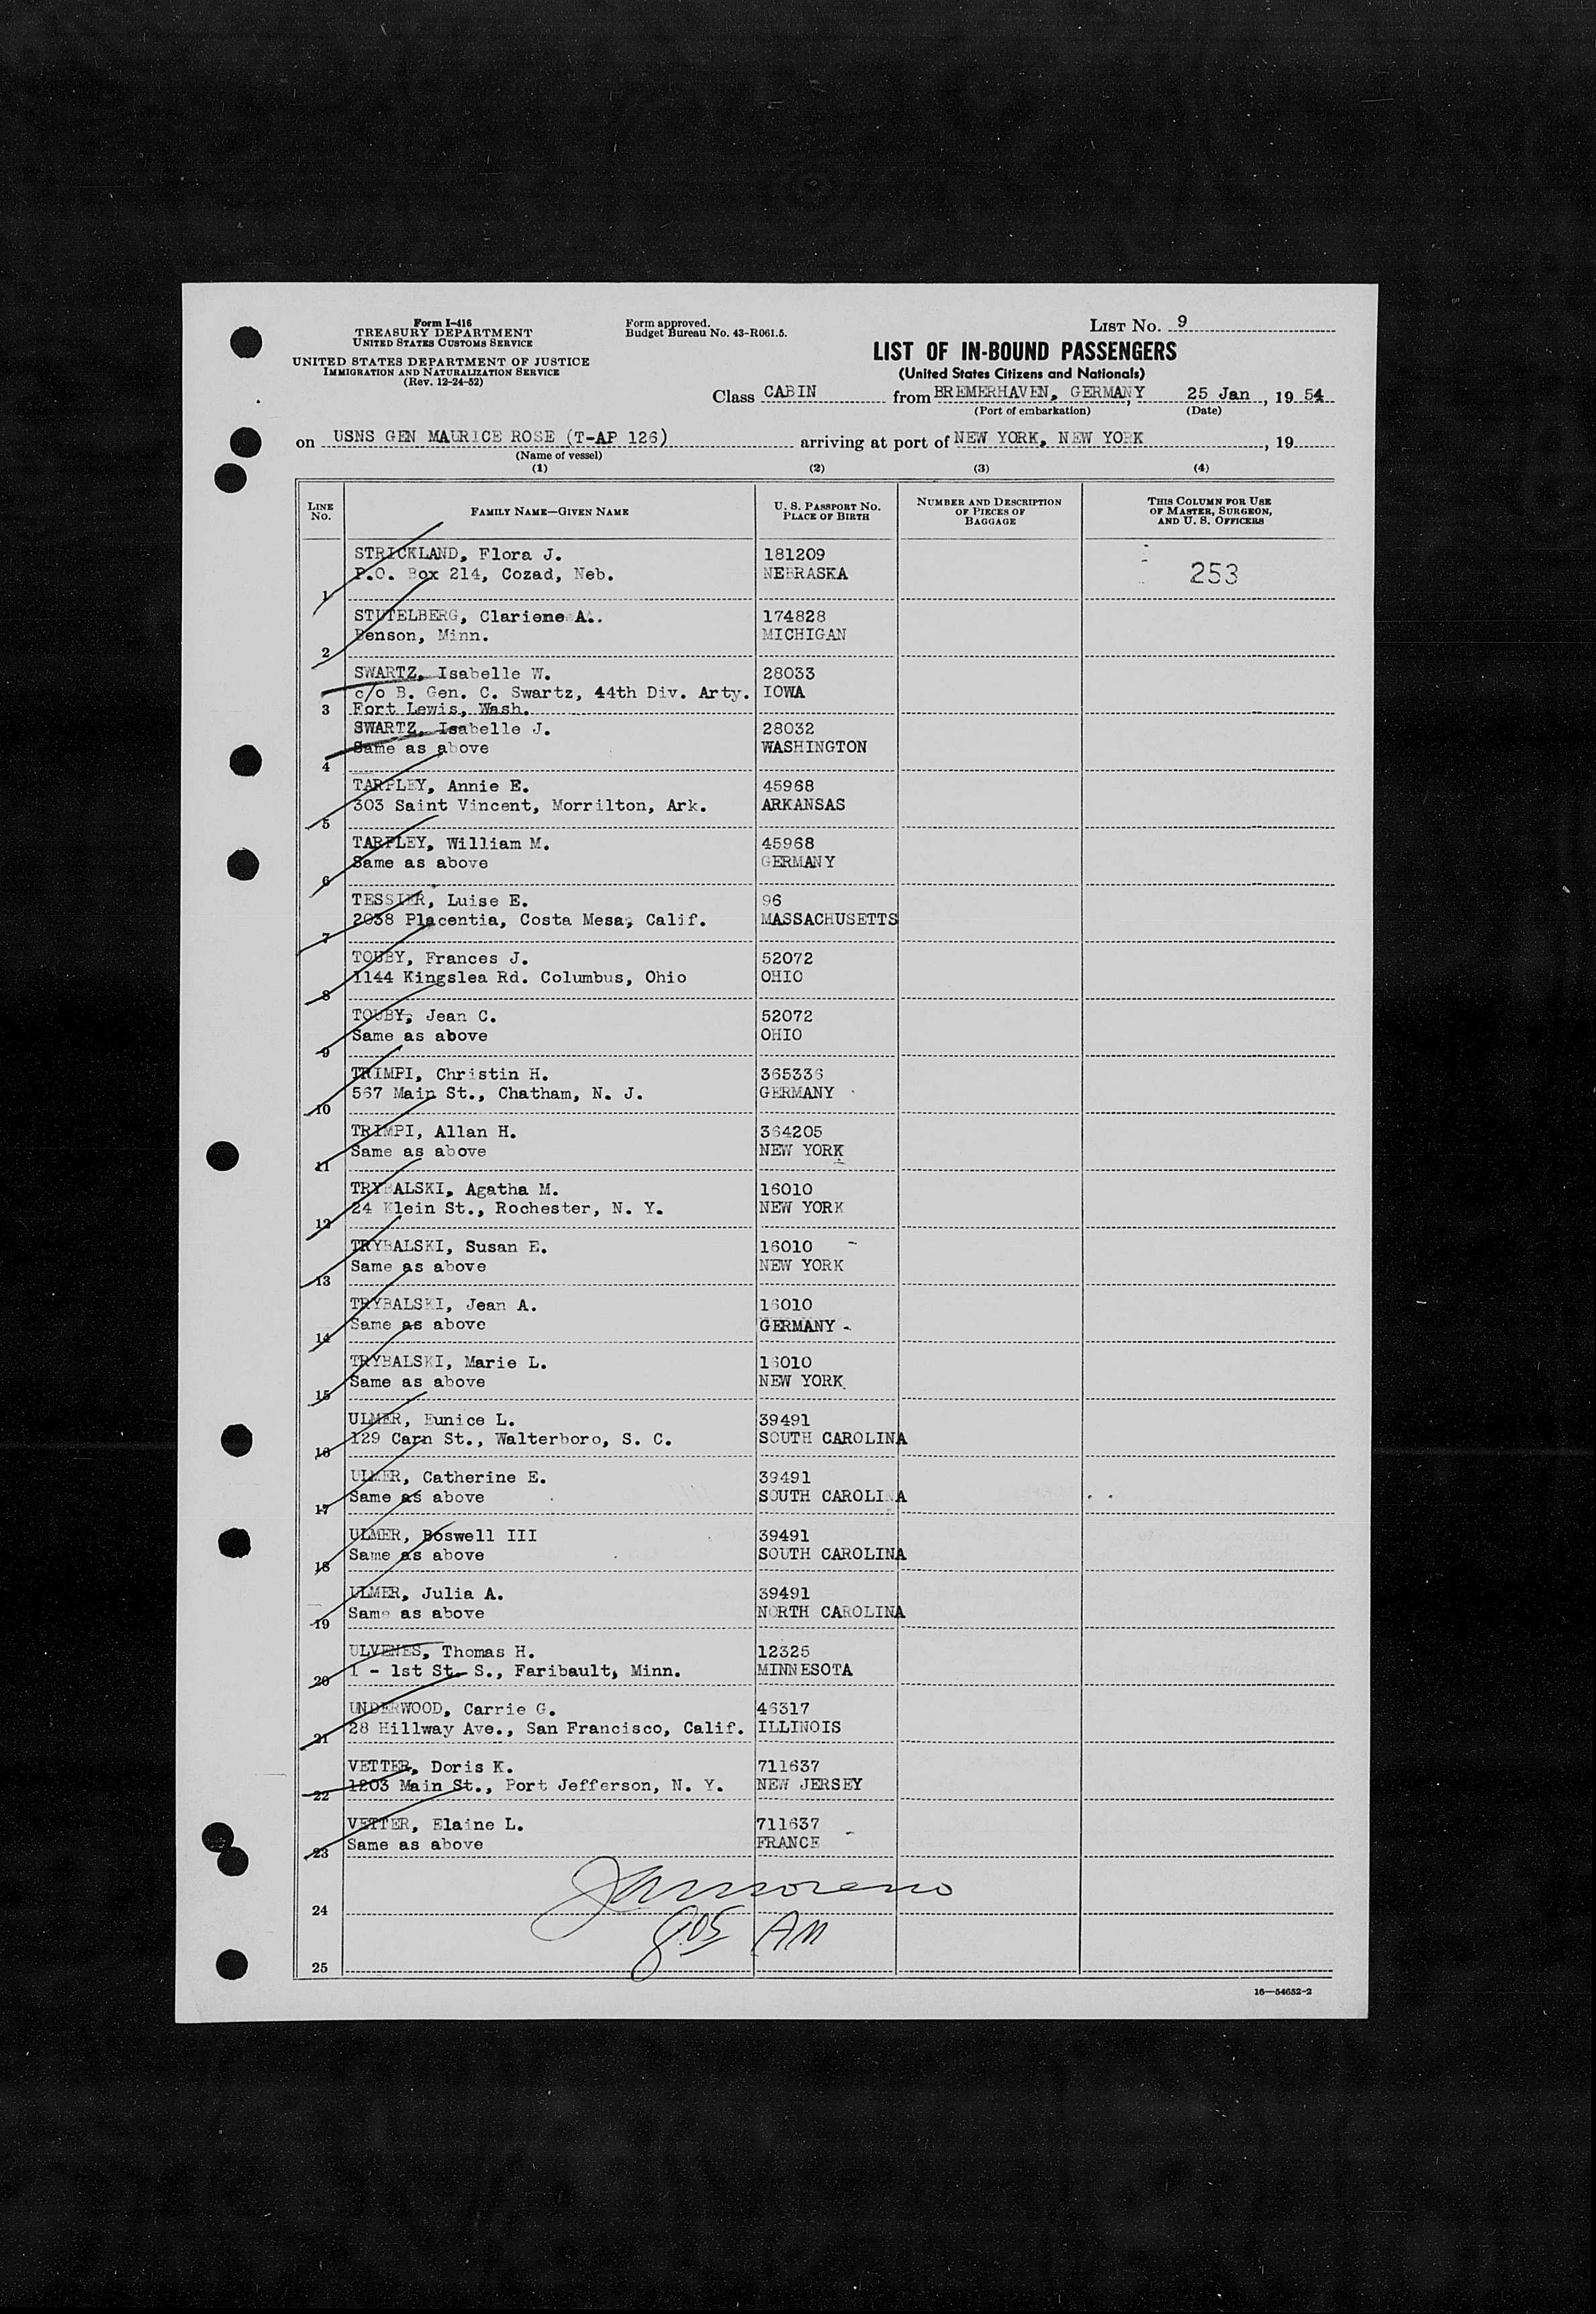 Form I-416
TREASURY DEPARTMENT
UNITED STATES CUSTOMS SERVICE
UNITED STATES DEPARTMENT OF JUSTICE
IMMIGRATION AND NATURALIZATION SERVICE
(Rev. 12-24-52)
Form approved.
Budget Bureau No. 43-R061.5.
LIST No. 9
LIST OF IN-BOUND PASSENGERS
(United States Citizens and Nationals)
Class CABIN from BREMERHAVEN, GERMANY, 25 Jan, 1954
(Port of embarkation) (Date)
on USNS GEN MAURICE ROSE (T-AP 126) arriving at port of NEW YORK, NEW YORK, 19
(Name of vessel)
(1) (2) (3) (4)
LINE No. FAMILY NAME—GIVEN NAME U. S. PASSPORT No. PLACE OF BIRTH NUMBER AND DESCRIPTION OF PIECES OF BAGGAGE THIS COLUMN FOR USE OF MASTER, SURGEON, AND U. S. OFFICERS
STRICKLAND, Flora J. 181209
P.O. Box 214, Cozad, Neb. NEBRASKA 253
1
STUTELBERG, Clariene A. 174828
Benson, Minn. MICHIGAN
2
SWARTZ, Isabelle W. 28033
c/o B. Gen. C. Swartz, 44th Div. Arty. IOWA
3 Fort Lewis, Wash.
SWARTZ, Isabelle J. 28032
Same as above WASHINGTON
4
TARPLEY, Annie E. 45968
303 Saint Vincent, Morrilton, Ark. ARKANSAS
5
TARPLEY, William M. 45968
Same as above GERMANY
6
TESSIER, Luise E. 96
2038 Placentia, Costa Mesa, Calif. MASSACHUSETTS
7
TOUBY, Frances J. 52072
1144 Kingslea Rd. Columbus, Ohio OHIO
8
TOUBY, Jean C. 52072
Same as above OHIO
9
TRIMPI, Christin H. 365336
567 Main St., Chatham, N. J. GERMANY
10
TRIMPI, Allan H. 364205
Same as above NEW YORK
11
TRYBALSKI, Agatha M. 16010
24 Klein St., Rochester, N. Y. NEW YORK
12
TRYBALSKI, Susan E. 16010
Same as above NEW YORK
13
TRYBALSKI, Jean A. 16010
Same as above GERMANY
14
TRYBALSKI, Marie L. 16010
Same as above NEW YORK
15
ULMER, Eunice L. 39491
129 Carn St., Walterboro, S. C. SOUTH CAROLINA
16
ULMER, Catherine E. 39491
Same as above SOUTH CAROLINA
17
ULMER, Boswell III 39491
Same as above SOUTH CAROLINA
18
ULMER, Julia A. 39491
Same as above NORTH CAROLINA
19
ULVENES, Thomas H. 12325
1 - 1st St. S., Faribault, Minn. MINNESOTA
20
UNDERWOOD, Carrie G. 46317
28 Hillway Ave., San Francisco, Calif. ILLINOIS
21
VETTER, Doris K. 711637
1203 Main St., Port Jefferson, N. Y. NEW JERSEY
22
VETTER, Elaine L. 711637
Same as above FRANCE
23
24
805 AM
25
16—54652-2